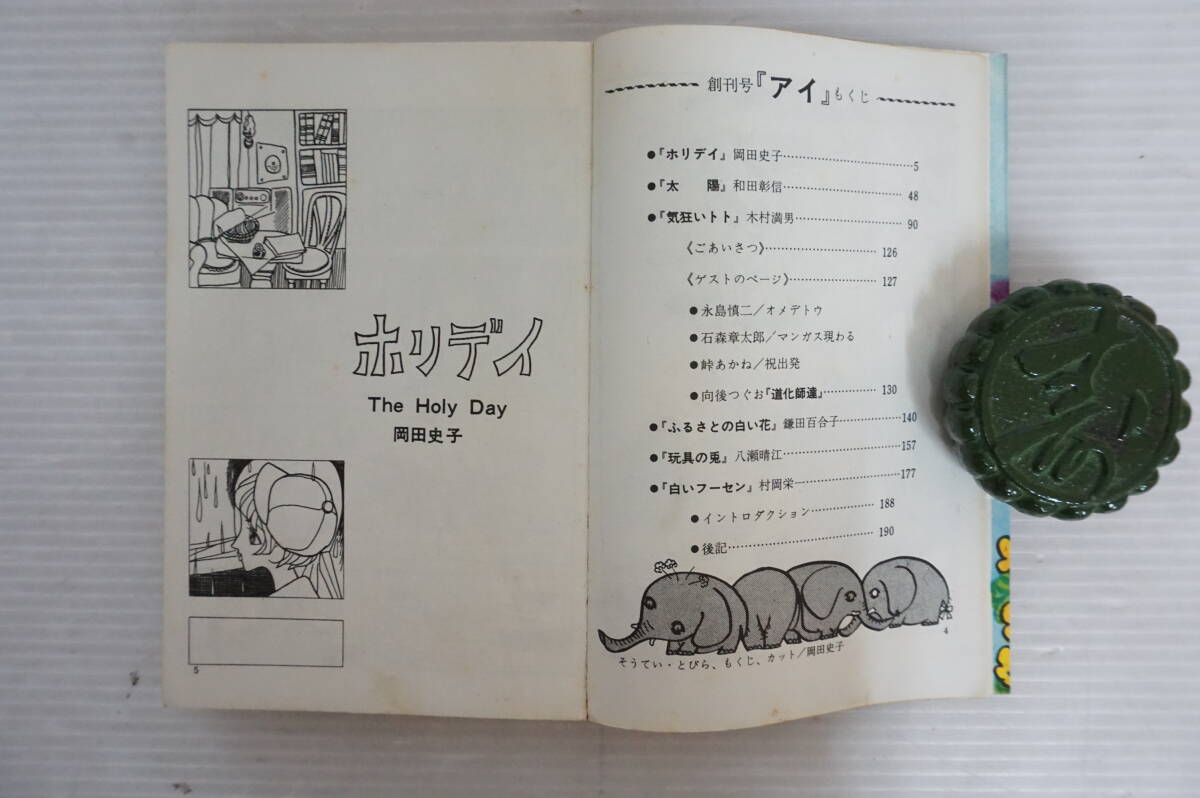 創刊号『アイ』もくじ
●『ホリデイ』岡田史子……………5
●『太　陽』和田彰信……………48
●『気狂いトト』木村満男……………90
《ごあいさつ》……………126
《ゲストのページ》……………127
●永島慎二／オメデトウ
●石森章太郎／マンガス現わる
●峠あかね／祝出発
●向後つぐお『道化師達』……………130
●『ふるさとの白い花』鎌田百合子……………140
●『玩具の兎』八瀬晴江……………157
●『白いフーセン』村岡栄……………177
●イントロダクション……………188
●後記……………190
そうてい・とびら、もくじ、カット／岡田史子
4
ホリデイ
The Holy Day
岡田史子
5